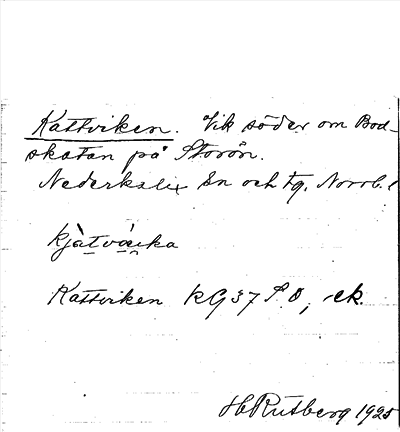 Kattviken. Vik söder om Bod-
skatan på Storön.
Nederkalix sn och tg. Norrb. l
kjàtváika
Kattviken KG 37 S O, ek.
HRutberg 1925